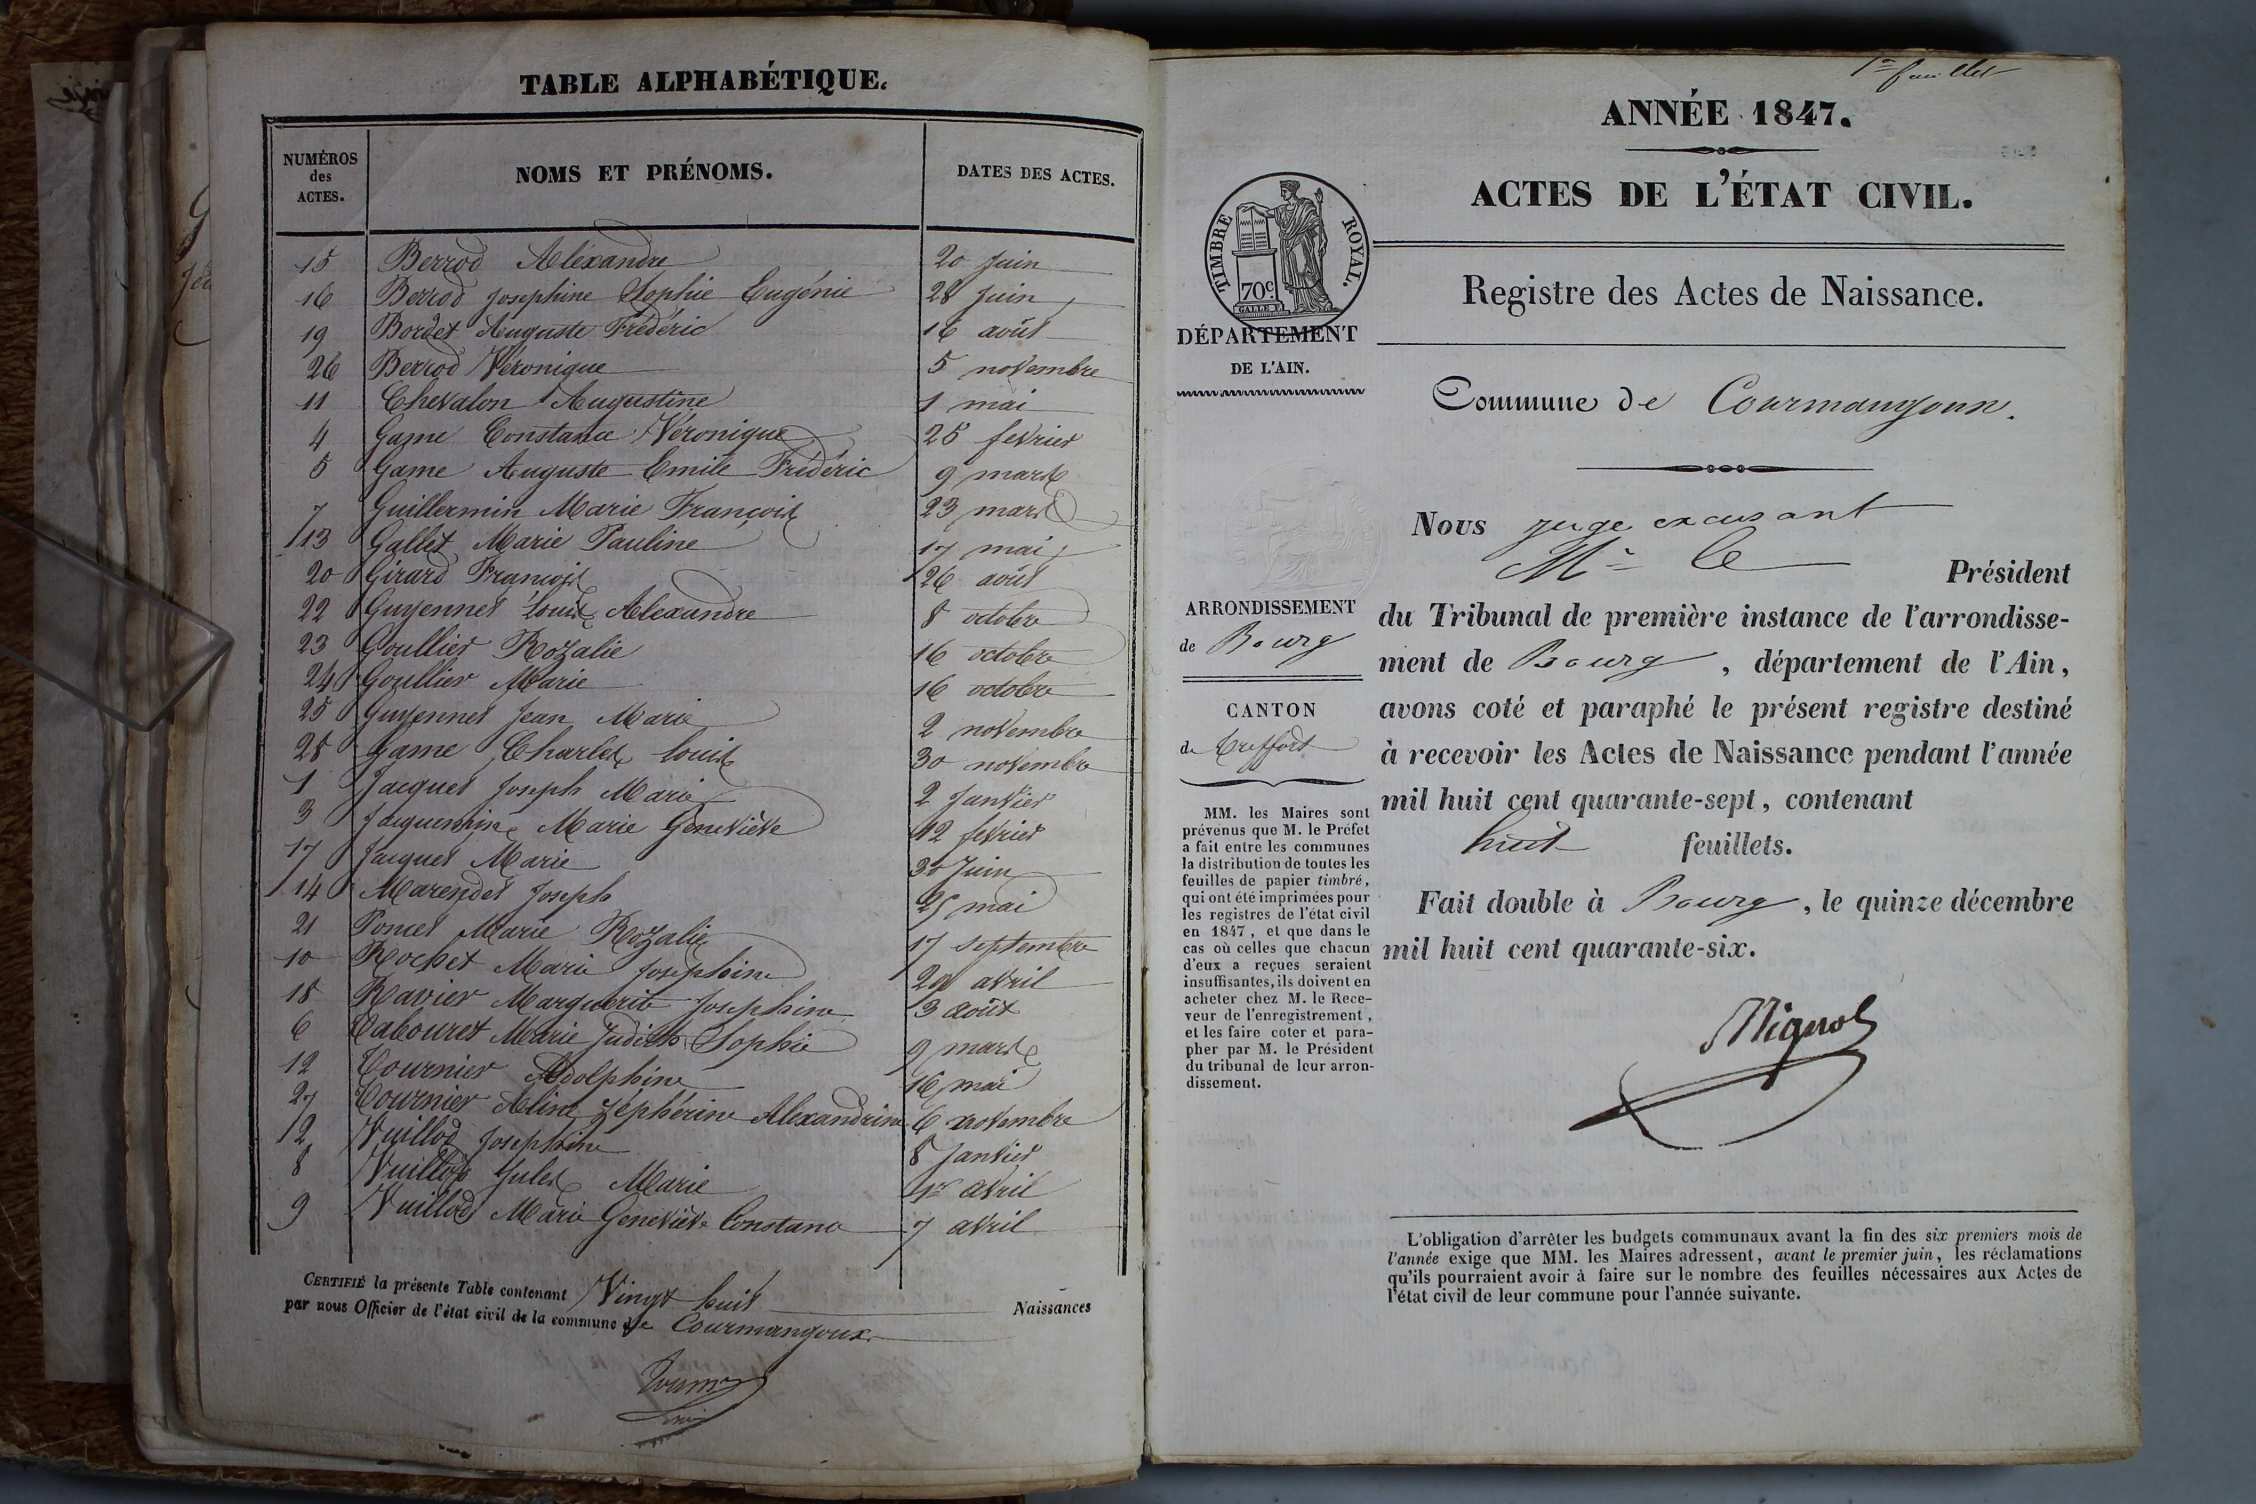 TABLE ALPHABÉTIQUE.
NUMÉROS des ACTES. NOMS ET PRÉNOMS. DATES DES ACTES.
15 Berrod Aléxandre 20 Juin
16 Berrod Josephine Sophie Eugénie 28 Juin
19 Bordet Auguste Frédéric 16 août
26 Berrod Véronique 5 novembre
11 Chevalon Augustine 1 mai
4 Game Constance Véronique 25 fevrier
5 Game Auguste Emile Frédéric 9 mars
7 Guillermin Marie François 23 mars
13 Gallet Marie Pauline 17 mai
20 Girard François 26 août
22 Guyennet Louis Alexandre 8 octobre
23 Goullier Rozalie 16 octobre
24 Goullier Marie 16 octobre
25 Guyennet Jean Marie 2 novembre
28 Game Charles Louis 30 novembre
1 Jacquet Joseph Marie 2 Janvier
3 Jacquemin Marie Geneviève 12 fevrier
17 Jacquet Marie 30 Juin
14 Marendet Joseph 25 mai
21 Poncet Marie Rozalie 17 septembre
10 Rochet Marie Josephine 29 avril
18 Ravier Marguerite Josephine 3 août
6 Tabouret Marie Judith Sophie 9 mars
12 Tournier Adolphine 16 mai
27 Tournier Aline Zéphérine Alexandrine 6 novembre
2 Vuillod Josephine 8 Janvier
8 Vuillod Jules Marie 1er avril
9 Vuillod Marie Geneviève Constance 7 avril
CERTIFIÉ la présente Table contenant Vingt huit Naissances
par nous Officier de l'état civil de la commune de Courmangoux.
1er feuillet
ANNÉE 1847.
ACTES DE L'ÉTAT CIVIL.
TIMBRE ROYAL.
70c.
Registre des Actes de Naissance.
DÉPARTEMENT
DE L'AIN.
Commune de Courmangoux.
Nous juge excusant
Mr le Président
du Tribunal de première instance de l'arrondisse-
ment de Bourg, département de l'Ain,
avons coté et paraphé le présent registre destiné
à recevoir les Actes de Naissance pendant l'année
mil huit cent quarante-sept, contenant
huit feuillets.
Fait double à Bourg, le quinze décembre
mil huit cent quarante-six.
ARRONDISSEMENT
de Bourg
CANTON
de Treffort
MM. les Maires sont
prévenus que M. le Préfet
a fait entre les communes
la distribution de toutes les
feuilles de papier timbré,
qui ont été imprimées pour
les registres de l'état civil
en 1847, et que dans le
cas où celles que chacun
d'eux a reçues seraient
insuffisantes, ils doivent en
acheter chez M. le Rece-
veur de l'enregistrement,
et les faire coter et para-
pher par M. le Président
du tribunal de leur arron-
dissement.
L'obligation d'arrêter les budgets communaux avant la fin des six premiers mois de
l'année exige que MM. les Maires adressent, avant le premier juin, les réclamations
qu'ils pourraient avoir à faire sur le nombre des feuilles nécessaires aux Actes de
l'état civil de leur commune pour l'année suivante.